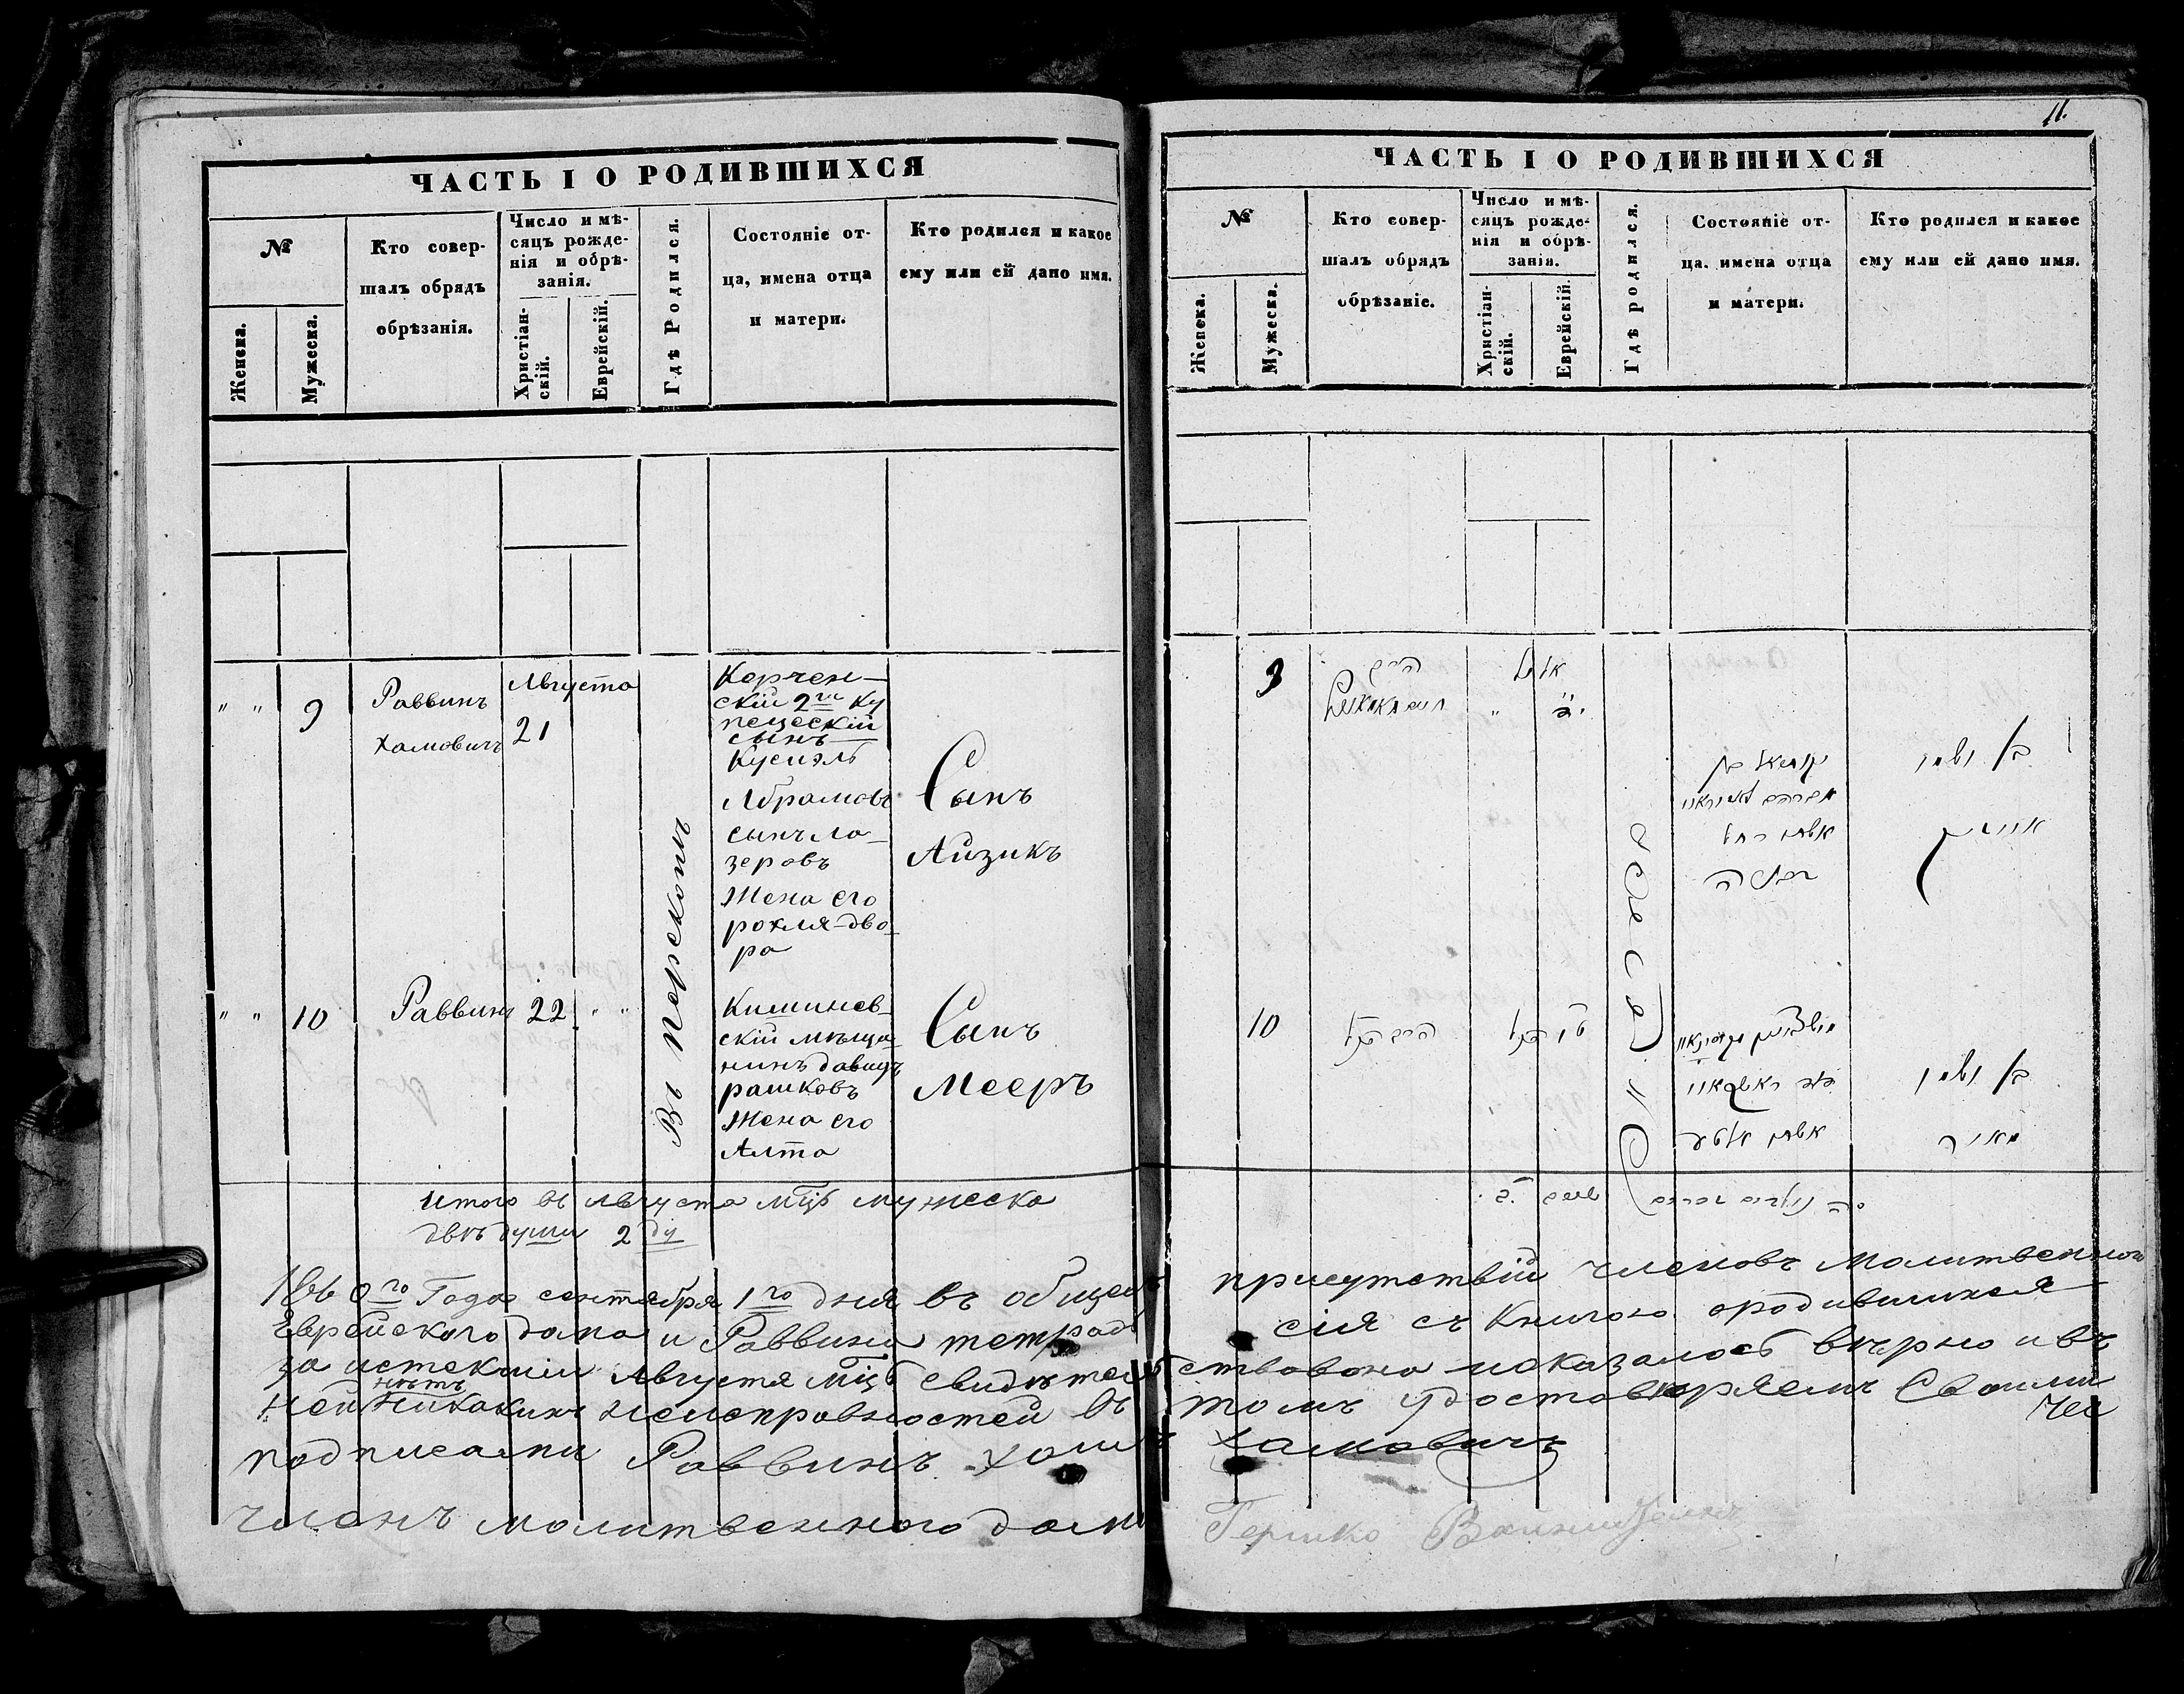 11.
ЧАСТЬ I О РОДИВШИХСЯ
№
Женска.
Мужеска.
Кто совер-
шалъ обрядъ
обрѣзанія.
Число и мѣ-
сяцъ рожде-
нія и обрѣ-
занія.
Христіан-
скій.
Еврейскій.
Гдѣ Родился.
Состояніе от-
ца, имена отца
и матери.
Кто родился и какое
ему или ей дано имя.
" "
9
Раввинъ
Хамовичъ
Августа
21
Въ перекопъ
Керчен-
скій 2го ку
печескій
сынъ
Кусиэль
Абрамовъ
сынъ ла-
зеровъ
Жена его
рохля-дво-
ра
Сынъ
Айзикъ
" "
10
Раввинъ
22
" "
Кишинев-
скій мѣща-
нинъ давидъ
рашковъ
Жена его
Алта
Сынъ
Мееръ
итого въ Августа мцѣ мужеска
двѣ души 2 ду
ЧАСТЬ I О РОДИВШИХСЯ
№
Женска.
Мужеска.
Кто совер-
шалъ обрядъ
обрѣзаніе.
Число и мѣ-
сяцъ рожде-
нія и обрѣ-
занія.
Христіан-
скій.
Еврейскій.
Гдѣ родился.
Состояніе от-
ца. имена отца
и матери.
Кто родился и какое
ему или ей дано имя.
9
הרב
אלול
יקותיאל בן
אברהם
אשתו רחל
דבורה
בן ושמו
אייזיק
10
דוד ראשקאוו
אשתו אלטע
בן ושמו
מאיר
1860го Года сентября 1го дня въ общемъ присутствіи членовъ Молитвенного
Еврейского дома и Раввина тетрадь сія съ Книгою ородившихся
за истекшіи Августа мцъ свидѣтельствована и оказалось вѣрно и въ
ней нѣтъ никакихъ неисправностей въ томъ удостовѣряемъ Своими
подписами Раввинъ Хамовичъ
членъ молитвенного дома Гершко